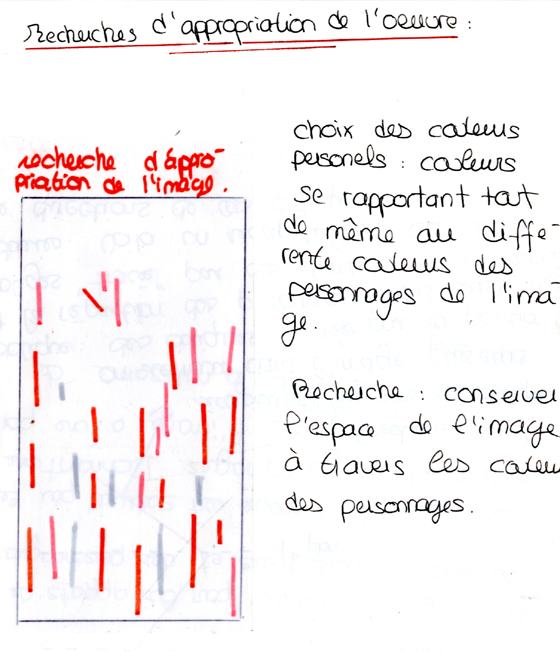 Recherches d'appropriation de l'oeuvre :
recherche d'appro-
priation de l'image.
choix des couleurs
personels : couleurs
se rapportant tout
de même au diffé-
rente couleurs des
personnages de l'ima-
ge.
Recherche : conserver
l'espace de l'image
à travers les couleu
des personnages.